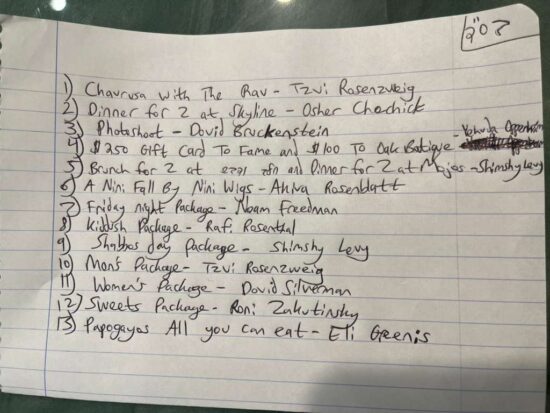 בס"ד
1) Chavrusa with The Rav - Tzvi Rosenzweig
2) Dinner for 2 at Skyline - Osher Chochick
3) Photoshoot - David Bruckenstein
4) $250 Gift Card To Fame and $100 To Oak Batique - Yehuda Oppenheim
5) Brunch for 2 at and Dinner for 2 at Mojos - Shimshy Levy
6) A Nini Fall By Nini Wigs - Akiva Rosenblatt
7) Friday night Package - Noam Freedman
8) Kiddush Package - Rafi Rosenthal
9) Shabbos day Package - Shimshy Levy
10) Mon's Package - Tzvi Rosenzweig
11) Women's Package - David Silverman
12) Sweets Package - Roni Zakutinsky
13) Papogayos All you can eat - ETi Greenis